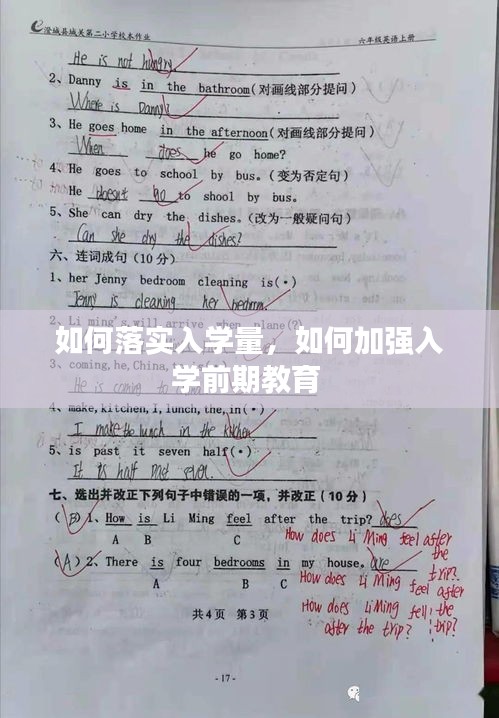 澄城县城关第二小学校本作业 六年级英语上册
He is not hungry.
2、Danny is in the bathroom(对画线部分提问)
Where is Danny?
3、He goes home in the afternoon(对画线部分提问)
When does he go home?
4、He goes to school by bus.(变为否定句)
He doesn't go to shool by bus.
5、She can dry the dishes.(改为一般疑问句)
Can she dry the dishes?
六、连词成句(10分)
1、her Jenny bedroom cleaning is(.)
Jenny is cleaning her bedroom.
2、Li ming's,will,arrive,when,plane(?)
如何落实入学量，如何加强入
3、coming,he,China,
学前期教育
4、make,kitchen,I,lunch,the,in(.)
I make the lunch in the kitchen
5、is past it seven half(.)
It is half past seven.
七、选出并改正下列句子中错误的一项，并改正(10分)
(B)1、How is Li Ming feel after the trip? does
A B C
How does Li Ming feel after the trip?
(A)2、There is four bedrooms in my house. are
A B C
How does Li Ming feel after the trip?
How does Li Ming fell after the trip?
共4页 第3页
-17-